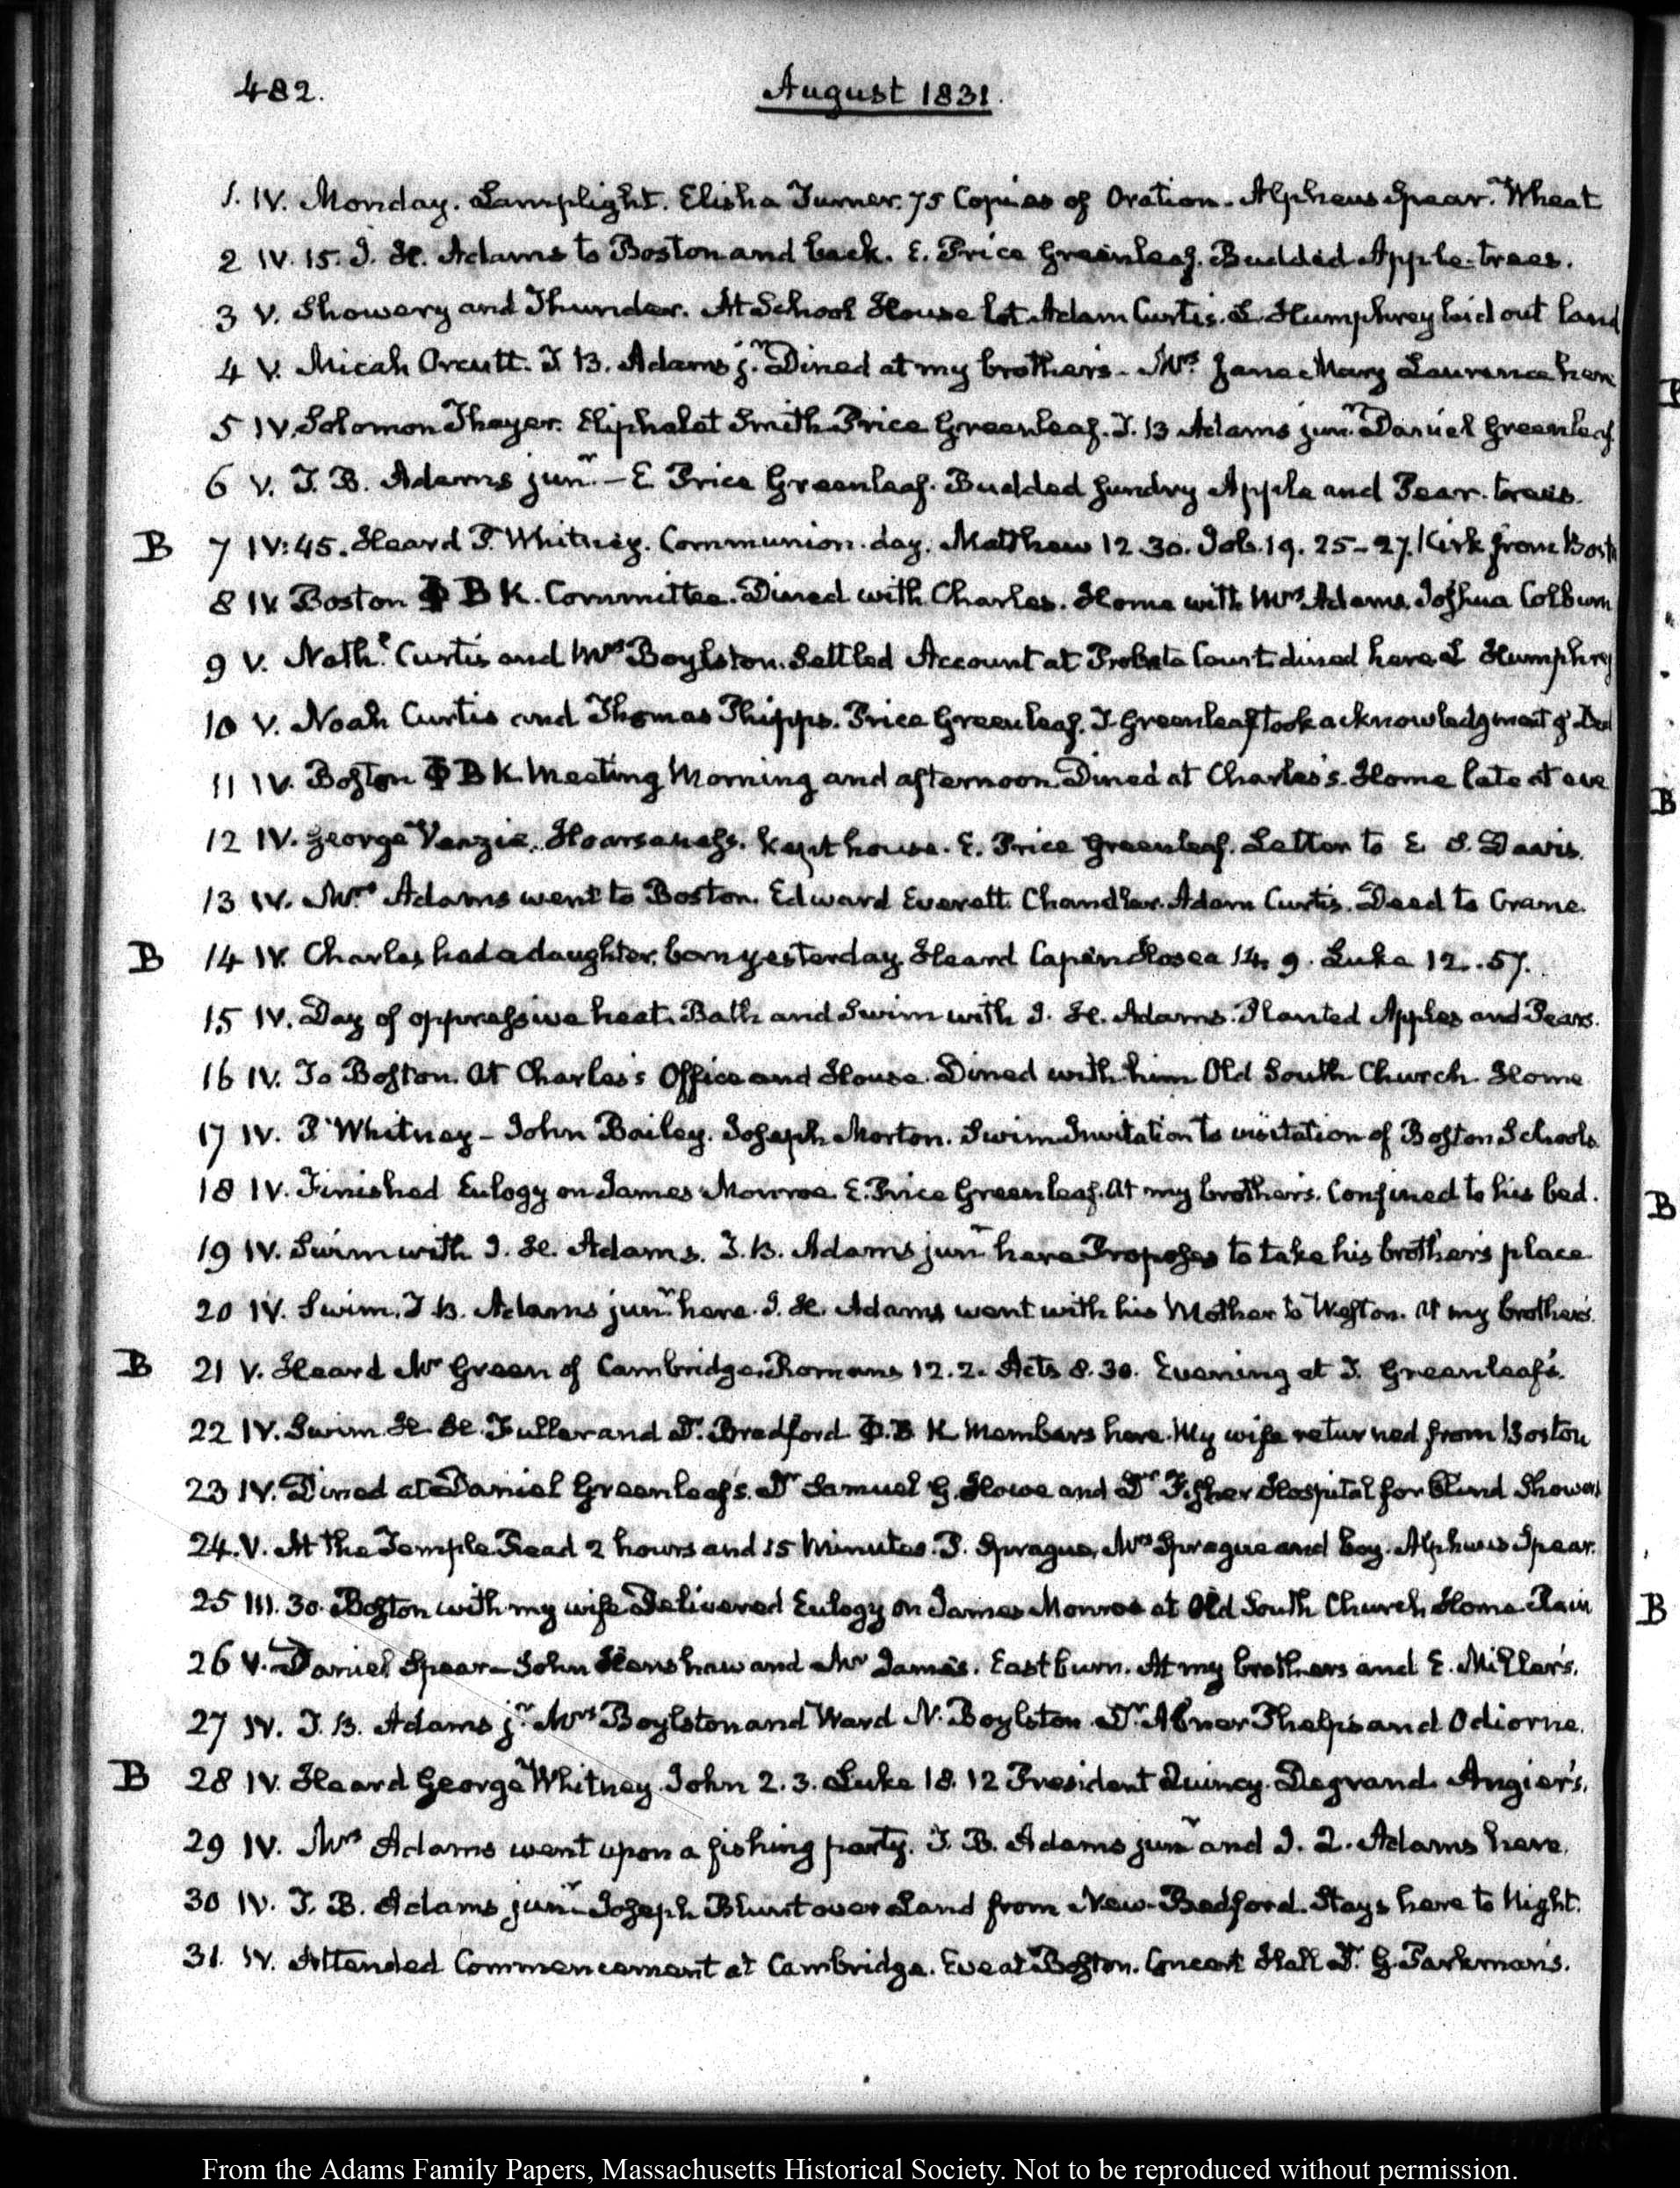 482.
August 1831.
1. IV. Monday. Lamplight. Elisha Turner. 75 Copies of Oration. Alpheus Spear. Wheat
2 IV. 15. I. H. Adams to Boston and back. E. Price Greenleaf. Budded Apple-trees.
3 V. Showery and Thunder. At School House lot. Adam Curtis. L. Humphrey laid out land
4 V. Micah Orcutt. T B. Adams jr. Dined at my brother's. Mrs. Mary Laurence here
5 IV. Solomon Thayer. Eliphalet Smith Price Greenleaf. T. B Adams junr. Daniel Greenleaf
6 V. T. B. Adams junr. – E. Price Greenleaf. Budded sundry Apple and Pear-trees.
B 7 IV: 45. Heard P. Whitney. Communion-day. Matthew 12. 30. Job. 19. 25-27. Kirk from
8 IV. Boston Φ B K. Committee. Dined with Charles. Home with Mrs Adams. Joshua Colburn
9 V. Nathl. Curtis and Mrs Boylston. Settled Account at Probate Court dined here. L Humphrey
10 V. Noah Curtis and Thomas Phipps. Price Greenleaf. T. Greenleaf took acknowledgment of
11 IV. Boston Φ B K. Meeting Morning and afternoon. Dined at Charles's. Home late at eve
12 IV. George Veazie. Hoarseness. kept house. E. Price Greenleaf. Letter to E. S. Davis.
13 IV. Mrs. Adams went to Boston. Edward Everett. Chandler. Adam Curtis. Deed to Crane.
B 14 IV. Charles had a daughter born yesterday. Heard Capen Hosea 14. 9. Luke 12. 57.
15 IV. Day of oppressive heat. Bath and Swim with I. H. Adams. Planted Apples and Pears.
16 IV. To Boston. At Charles's Office and House. Dined with him Old South Church. Home
17 IV. P. Whitney – John Bailey. Joseph Morton. Swim Invitation to visitation of Boston Schools.
18 IV. Finished Eulogy on James Monroe. E. Price Greenleaf. At my brother's. Confined to his bed.
19 IV. Swim with I. H. Adams. T. B. Adams junr here Proposes to take his brother's place
20 IV. Swim. T B. Adams junr. here. I. H. Adams went with his Mother to Weston. At my brother's.
B 21 V. Heard Mr Green of Cambridge. Romans 12. 2. Acts 8. 30. Evening at T. Greenleaf's.
22 IV. Swim. H. H. Fuller and D. Bradford Φ. B K Members here. My wife returned from Boston
23 IV. Dined at Daniel Greenleaf's. Dr Samuel G. Howe and Dr Fisher Hospital for Blind
24. V. At the Temple Read 2 hours and 15 Minutes. P. Sprague, Mrs Sprague and boy. Alpheus Spear.
25 III. 30. Boston with my wife Delivered Eulogy on James Monroe at Old South Church Home. Rain
26 V. Daniel Spear – John Henshaw and Mr James. Eastburn. At my brothers and E. Miller's.
27 IV. T. B. Adams jr. Mrs Boylston and Ward N. Boylston. Dr. Abner Phelps and Odiorne.
B 28 IV. Heard George Whitney. John 2. 3. Luke 18. 12 President Quincy. Degrand. Angier's.
29 IV. Mrs Adams went upon a fishing party. T. B. Adams junr and I. H. Adams here.
30 IV. T. B. Adams junr. Joseph Blunt over Land from New-Bedford. Stays here to Night.
31. IV. Attended Commencement at Cambridge. Eve at Boston. Concert Hall Dr. G. Parkman's.
From the Adams Family Papers, Massachusetts Historical Society. Not to be reproduced without permission.